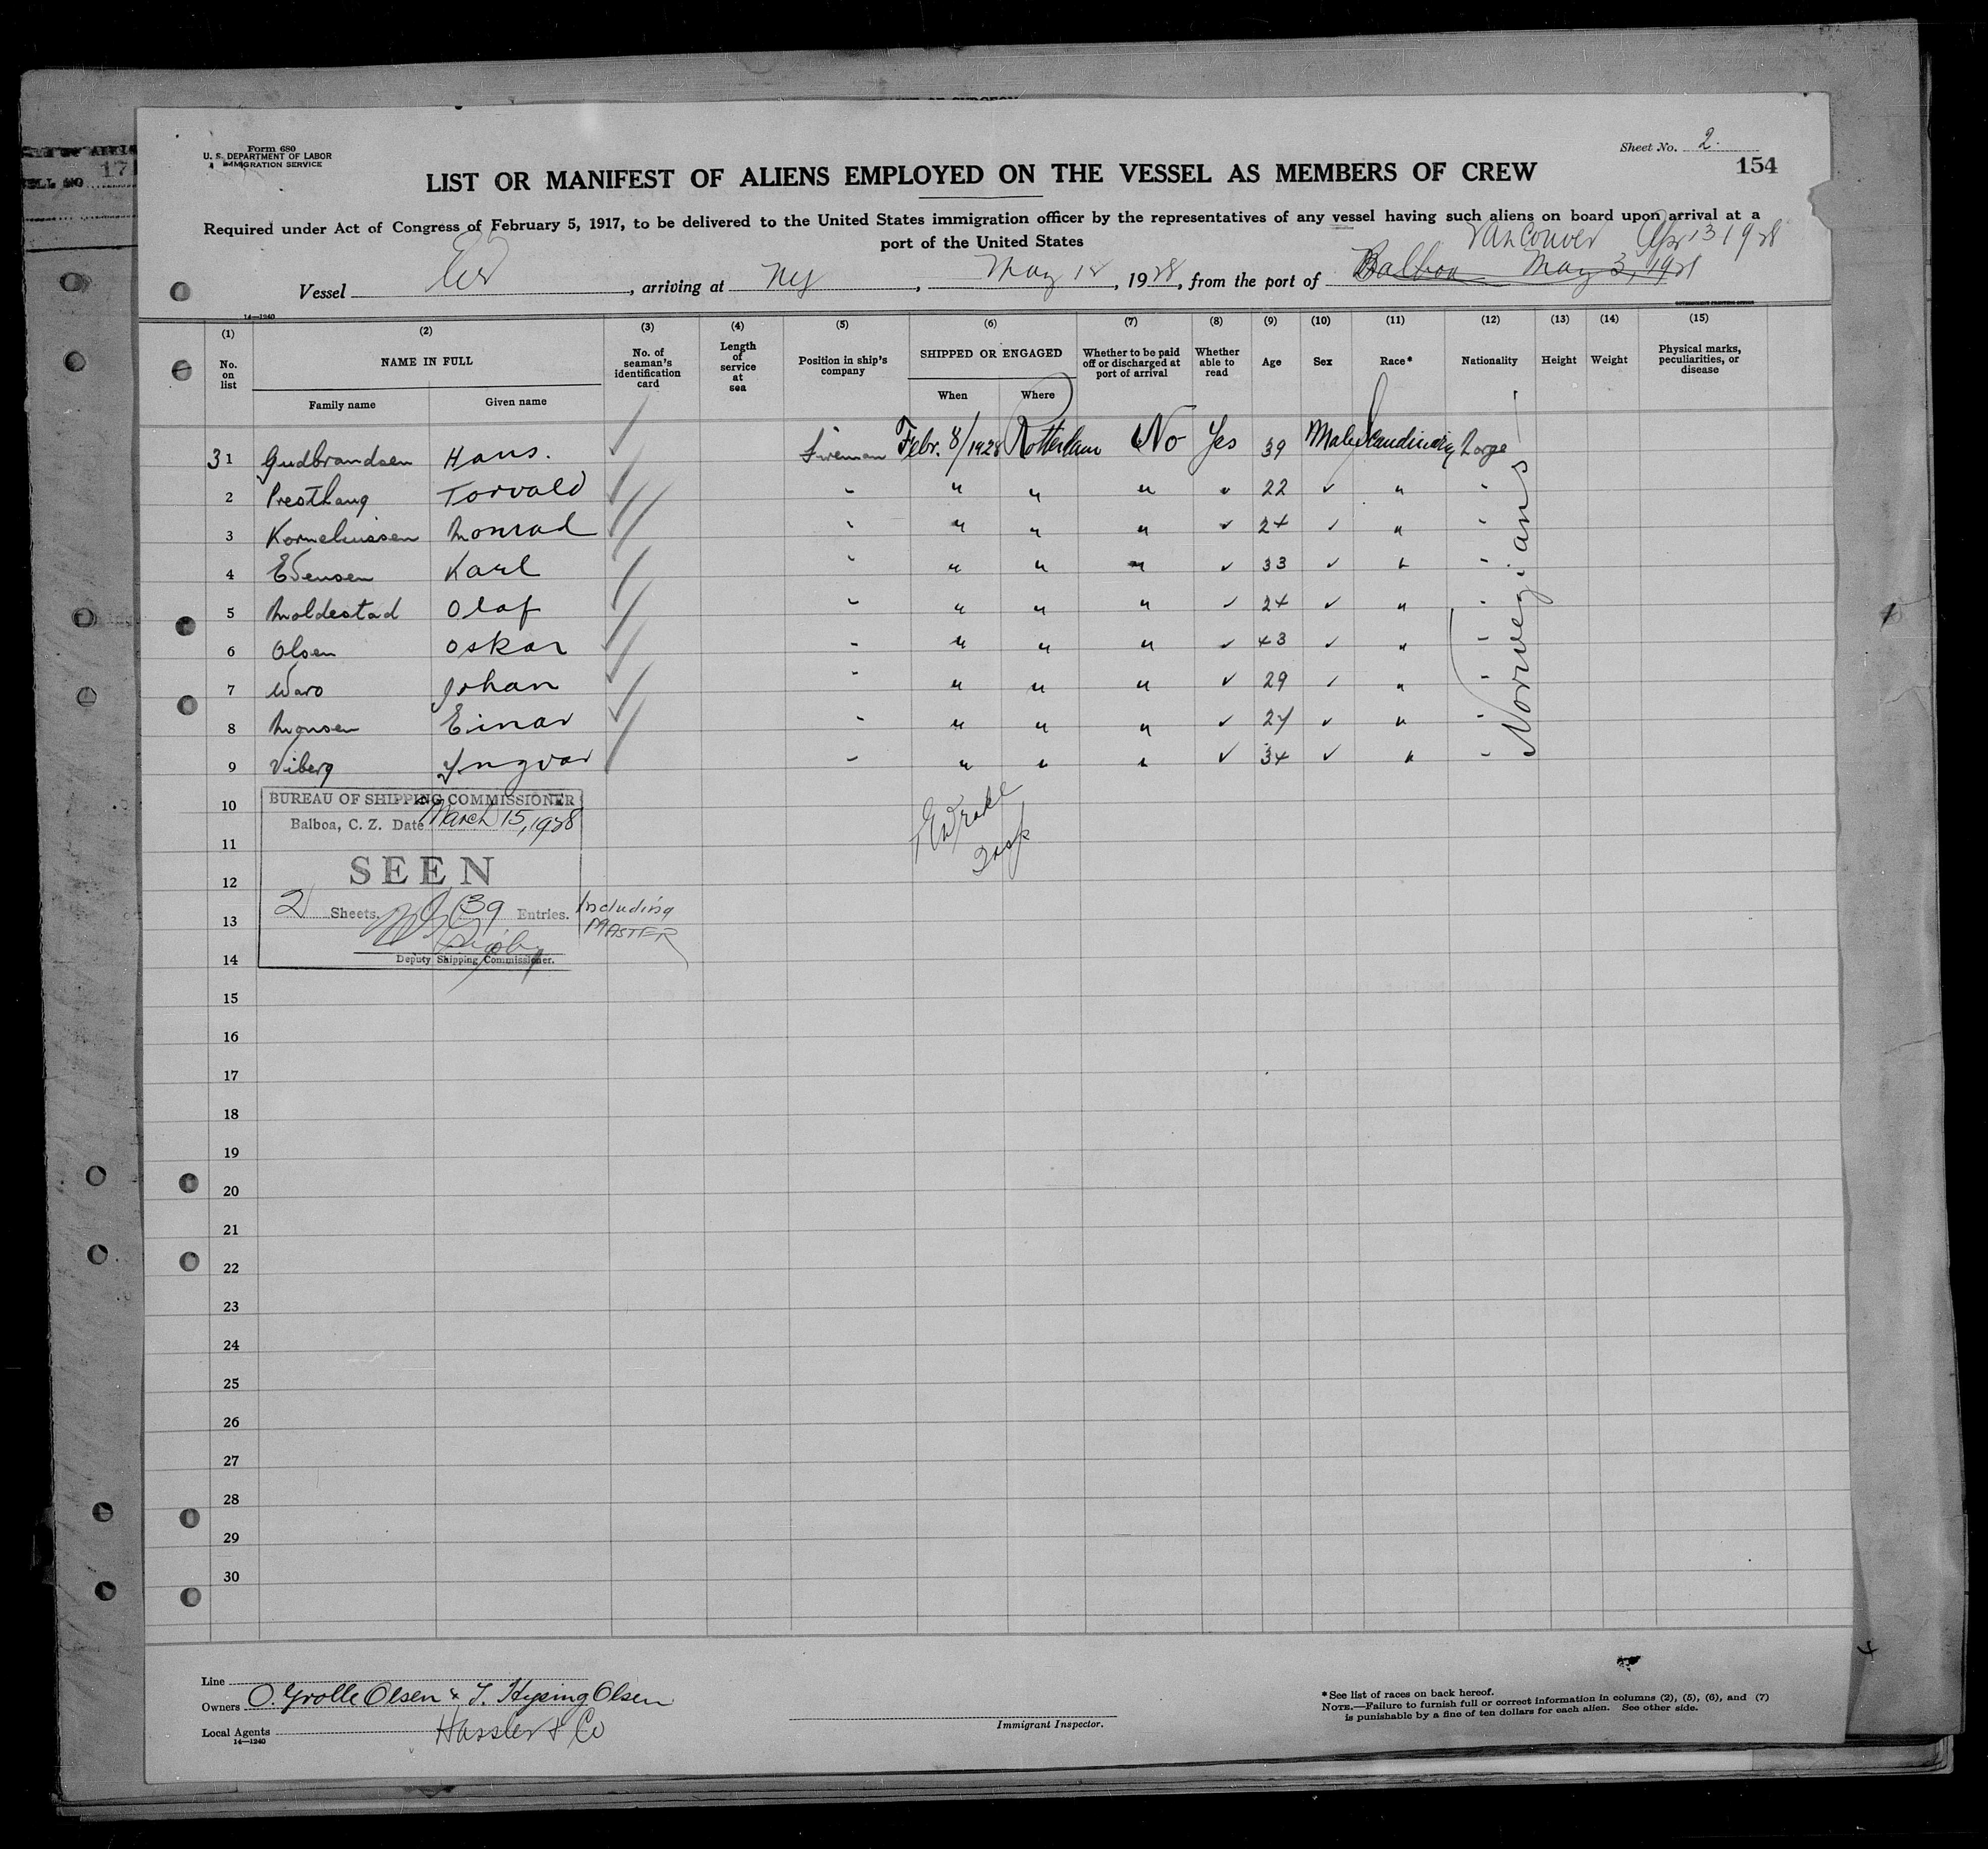 Form 680
U. S. DEPARTMENT OF LABOR
IMMIGRATION SERVICE
Sheet No. 2.
154
LIST OR MANIFEST OF ALIENS EMPLOYED ON THE VESSEL AS MEMBERS OF CREW
Required under Act of Congress of February 5, 1917, to be delivered to the United States immigration officer by the representatives of any vessel having such aliens on board upon arrival at a
port of the United States
Vancouver Apr 13 1928
Vessel, arriving at NY, May 12, 1928, from the port of Balboa May 3, 1928
14—1240
(1) (2) (3) (4) (5) (6) (7) (8) (9) (10) (11) (12) (13) (14) (15)
No. on list
NAME IN FULL
Family name
Given name
No. of seaman's identification card
Length of service at sea
Position in ship's company
SHIPPED OR ENGAGED
When
Where
Whether to be paid off or discharged at port of arrival
Whether able to read
Age
Sex
Race*
Nationality
Height
Weight
Physical marks, peculiarities, or disease
31 Gudbrandsen Hans. Fireman Febr. 8/1928 Rotterdam No Yes 39 Male Scandinavia Norge
2 Presthaug Torvald - " " " " 22 ✓ " -
3 Korneliussen Monrad - " " " ✓ 24 ✓ " -
4 Evensen Karl - " " " ✓ 33 ✓ " -
5 Moldestad Olaf - " " " ✓ 24 ✓ " -
6 Olsen Oskar - " " " ✓ 43 ✓ " -
7 Waro Johan - " " " ✓ 29 ✓ " -
8 Monsen Einar - " " " ✓ 27 ✓ " -
9 Viberg Yngvar - " " " ✓ 34 ✓ " -
Norwegians
10
11
12
13
14
15
16
17
18
19
20
21
22
23
24
25
26
27
28
29
30
BUREAU OF SHIPPING COMMISSIONER
Balboa, C. Z. Date March 15, 1928
SEEN
2 Sheets. 39 Entries. Including
MASTER
Deputy Shipping Commissioner.
Line
Owners O. Grolle Olsen & T. Hysing Olsen
Local Agents Hassler & Co
14—1240
Immigrant Inspector.
*See list of races on back hereof.
NOTE.—Failure to furnish full or correct information in columns (2), (5), (6), and (7)
is punishable by a fine of ten dollars for each alien. See other side.